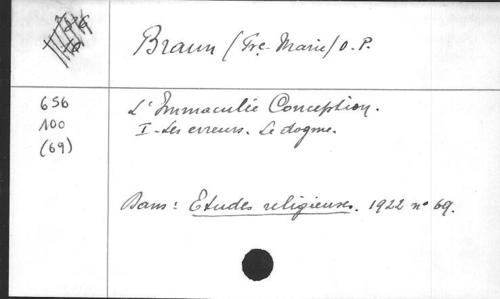 Braun (Fre. Marie) O. P.
656
100
(69)
L'Immaculée Conception.
I - Les erreurs. Le dogme.
Dans: Etudes religieuses. 1922 n° 69.